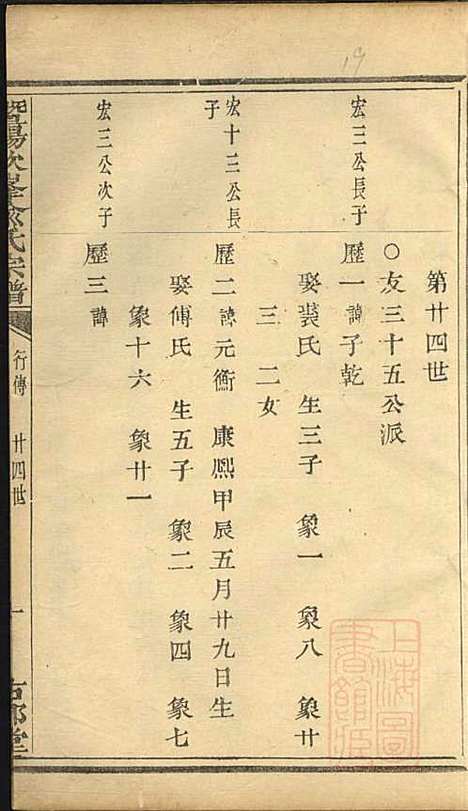 19
第廿四世
○友三十五公派
宏三公長子
歷一諱子乾
娶裘氏 生三子 象一 象八 象廿
三 二女
宏十三公長
子
歷二諱元衡 康熙甲辰五月廿九日生
娶傅氏 生五子 象二 象四 象七
象十六 象廿一
宏三公次子
歷三諱
暨陽次峯俞氏宗譜
行傳 廿四世
一
上海圖書館藏